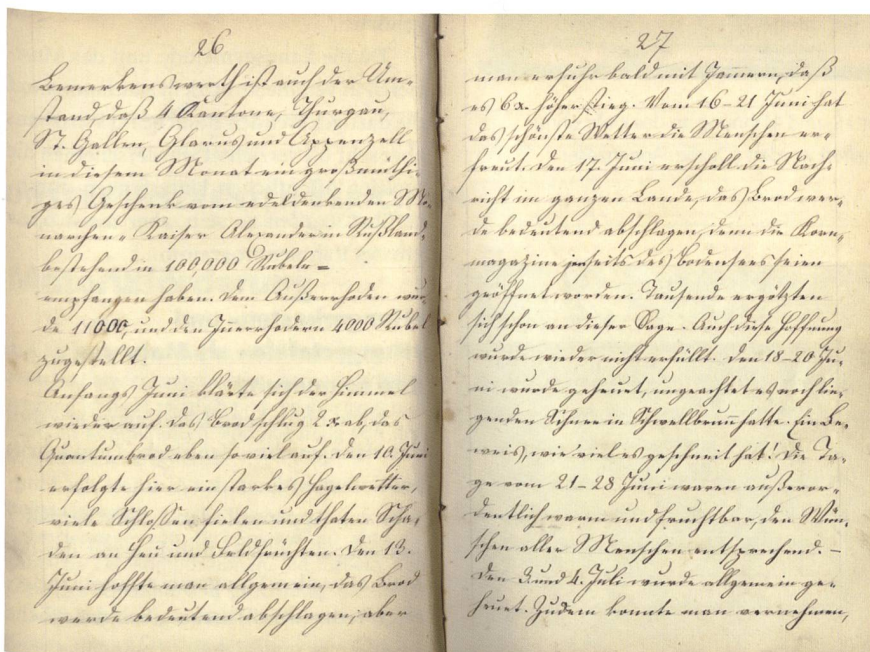 26
Bemerkenswerth ist auch der Um-
stand, daß 4 Kantone, Thurgau,
St. Gallen, Glarus und Appenzell
in diesem Monat ein großmüthi-
ges Geschenk vom edeldenkenden Mo-
narchen Kaiser Alexander in Rußland,
bestehend in 100,000 Rubeln =
empfangen haben. Dem Außerrhoden wur-
de 11000, und den Innerrhodern 4000 Rubel
zugestellt.
Anfangs Juni klärte sich der Himmel
wieder auf. das Brod schlug 2 x ab, das
Quantumbrod eben so viel auf. den 10. Juni
erfolgte hier ein starkes Hagelwetter,
viele Schloßen fielen und thaten Scha-
den an Heu und Feldfrüchten. Den 13.
Juni hoffte man allgemein, das Brod
werde bedeutend abschlagen; aber
27
man erfuhr bald mit Jammern, daß
es 6 x. höher stieg. Vom 16-21 Juni hat
das schönste Wetter die Menschen er-
freut. den 17. Juni erscholl die Nach-
richt im ganzen Lande, das Brod wer-
de bedeutend abschlagen, denn die Korn-
magazine jenseits des Bodensees seien
geöffnet worden. Tausende ergötzten
sich schon an dieser Sage. Auch diese Hoffnung
wurde wieder nicht erfüllt. den 18-20 Ju-
ni wurde geheuet, ungeachtet es noch lie-
genden Schnee in Schwellbrunn hatte. Ein Be-
weis, wie viel es geschneit hat! Die Ta-
ge vom 21-28 Juni waren außeror-
dentlich warm und fruchtbar, den Wün-
schen aller Menschen entsprechend. -
den 3. und 4. Juli wurde allgemein ge-
heuet. Zudem konnte man vernehmen,